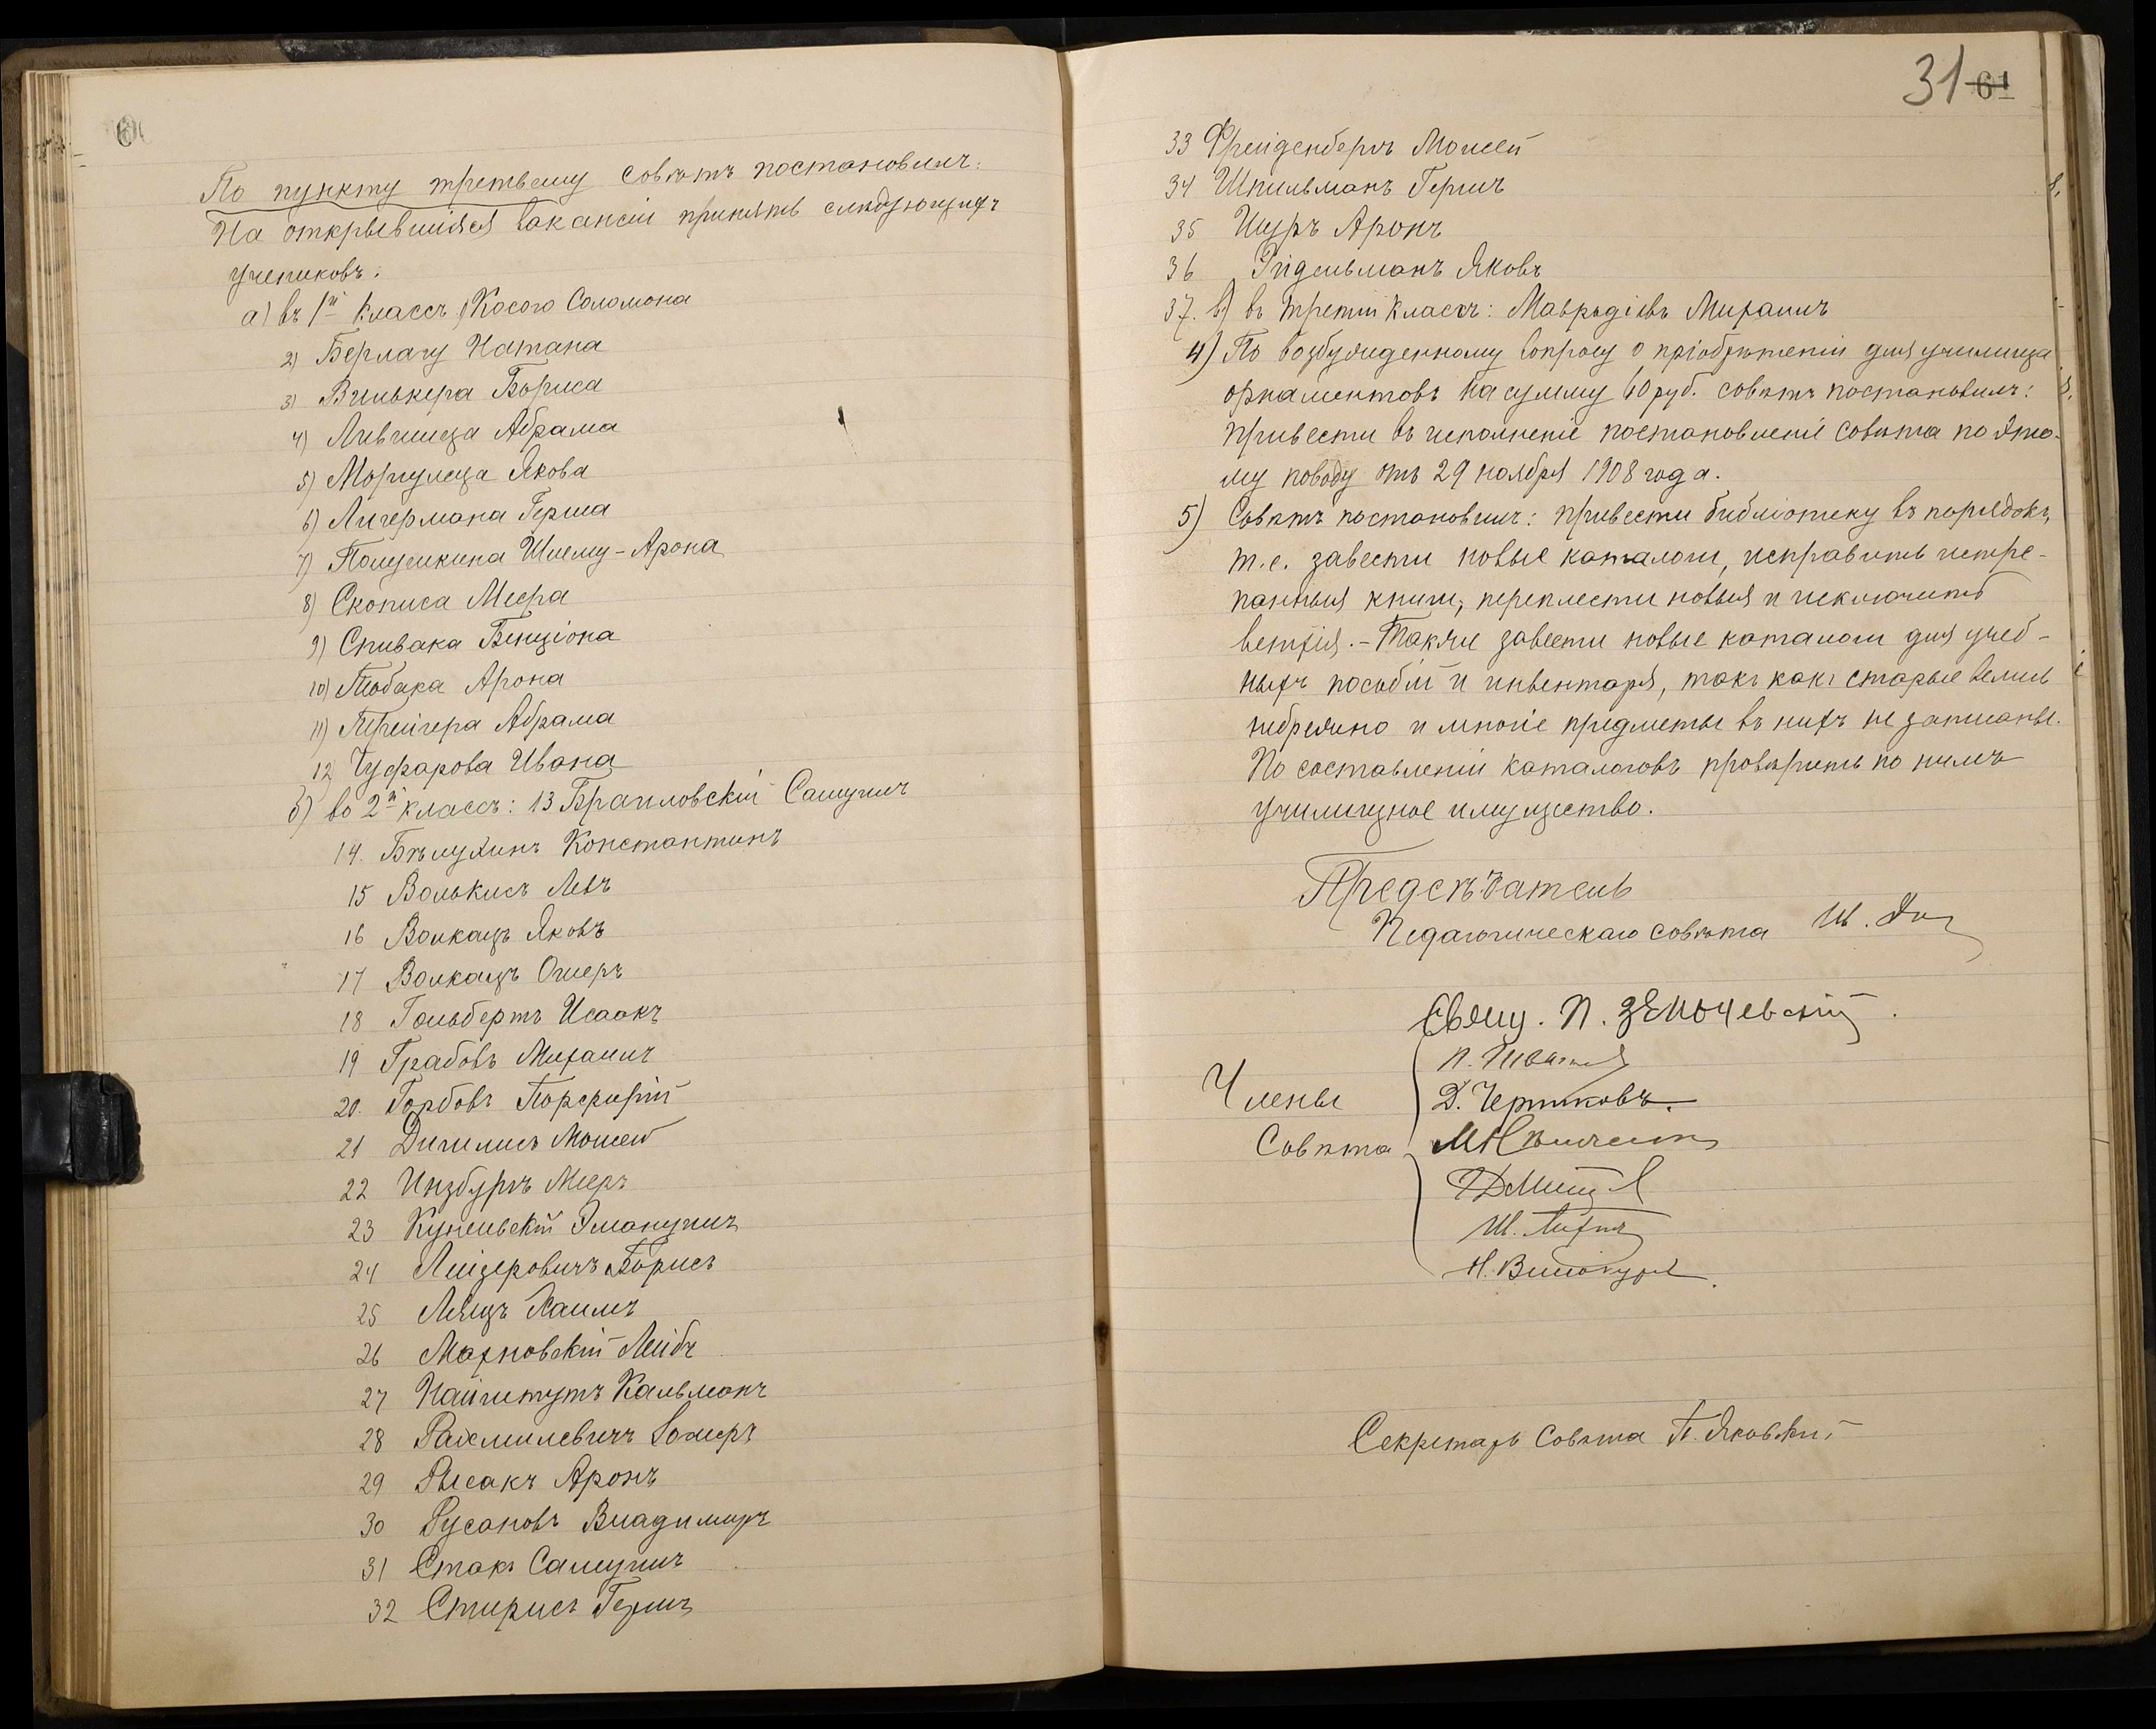 По пункту третьему совѣтъ постановилъ:
На открывшіяся вакансіи принять слѣдующихъ
учениковъ:
а) въ 1й классъ 1) Косого Соломона
2) Берлагу Натана
3) Вилькера Бориса
4) Лившица Абрама
5) Моргулеца Якова
6) Лигермана Герша
7) Полушкина Шлему-Арона
8) Скописа Меера
9) Спивака Бенціона
10) Тобака Арона
11) Трейгера Абрама
12) Чуфарова Ивана
б) во 2й классъ: 13 Браиловскій Самуилъ
14. Бѣлухинъ Константинъ
15 Волькисъ Левъ
16 Волкацъ Яковъ
17 Волкацъ Ошеръ
18 Гольбертъ Исаакъ
19 Грабовъ Михаилъ
20. Горбовъ Порфирій
21 Дигилисъ Мошей
22 Инзбургъ Мееръ
23 Эмануилъ
24 Лейзеровичъ Борисъ
25 Хаимъ
26 Махновскій Лейбъ
27 Найгитутъ Кальманъ
28 Рахмилевичъ
29 Рысакъ Аронъ
30 Русановъ Владимиръ
31 Стокъ Самуилъ
32 Стирисъ Гершъ
31 61
33 Фрейденбергъ Моисей
34 Шпильманъ Гершъ
35 Щуръ Аронъ
36 Эйдельманъ Яковъ
37. в) въ третій классъ: Маврѣдіевъ Михаилъ
4) По возбужденному вопросу о пріобрѣтеніи для училища
орнаментовъ на сумму 60 руб. совѣтъ постановилъ:
привести въ исполненіе постановленіе совѣта по это-
му поводу отъ 29 ноября 1908 года.
5) Совѣтъ постановилъ: привести библіотеку въ порядокъ,
т.е. завести новые каталоги, исправить истре-
панныя книги, переплести новыя и исключить
ветхія. - Также завести новые каталоги для учеб-
ныхъ пособій и инвентаря, такъ какъ старые велись
небрежно и многіе предметы въ нихъ не записаны.
По составленіи каталоговъ провѣрить по нимъ
училищное имущество.
Предсѣдатель
Педагогическаго совѣта Ш.
Свящ. П.
Члены
Совѣта
Д. Чертковъ.
Н. Винокуръ.
Секретарь Совѣта П. Яковскій